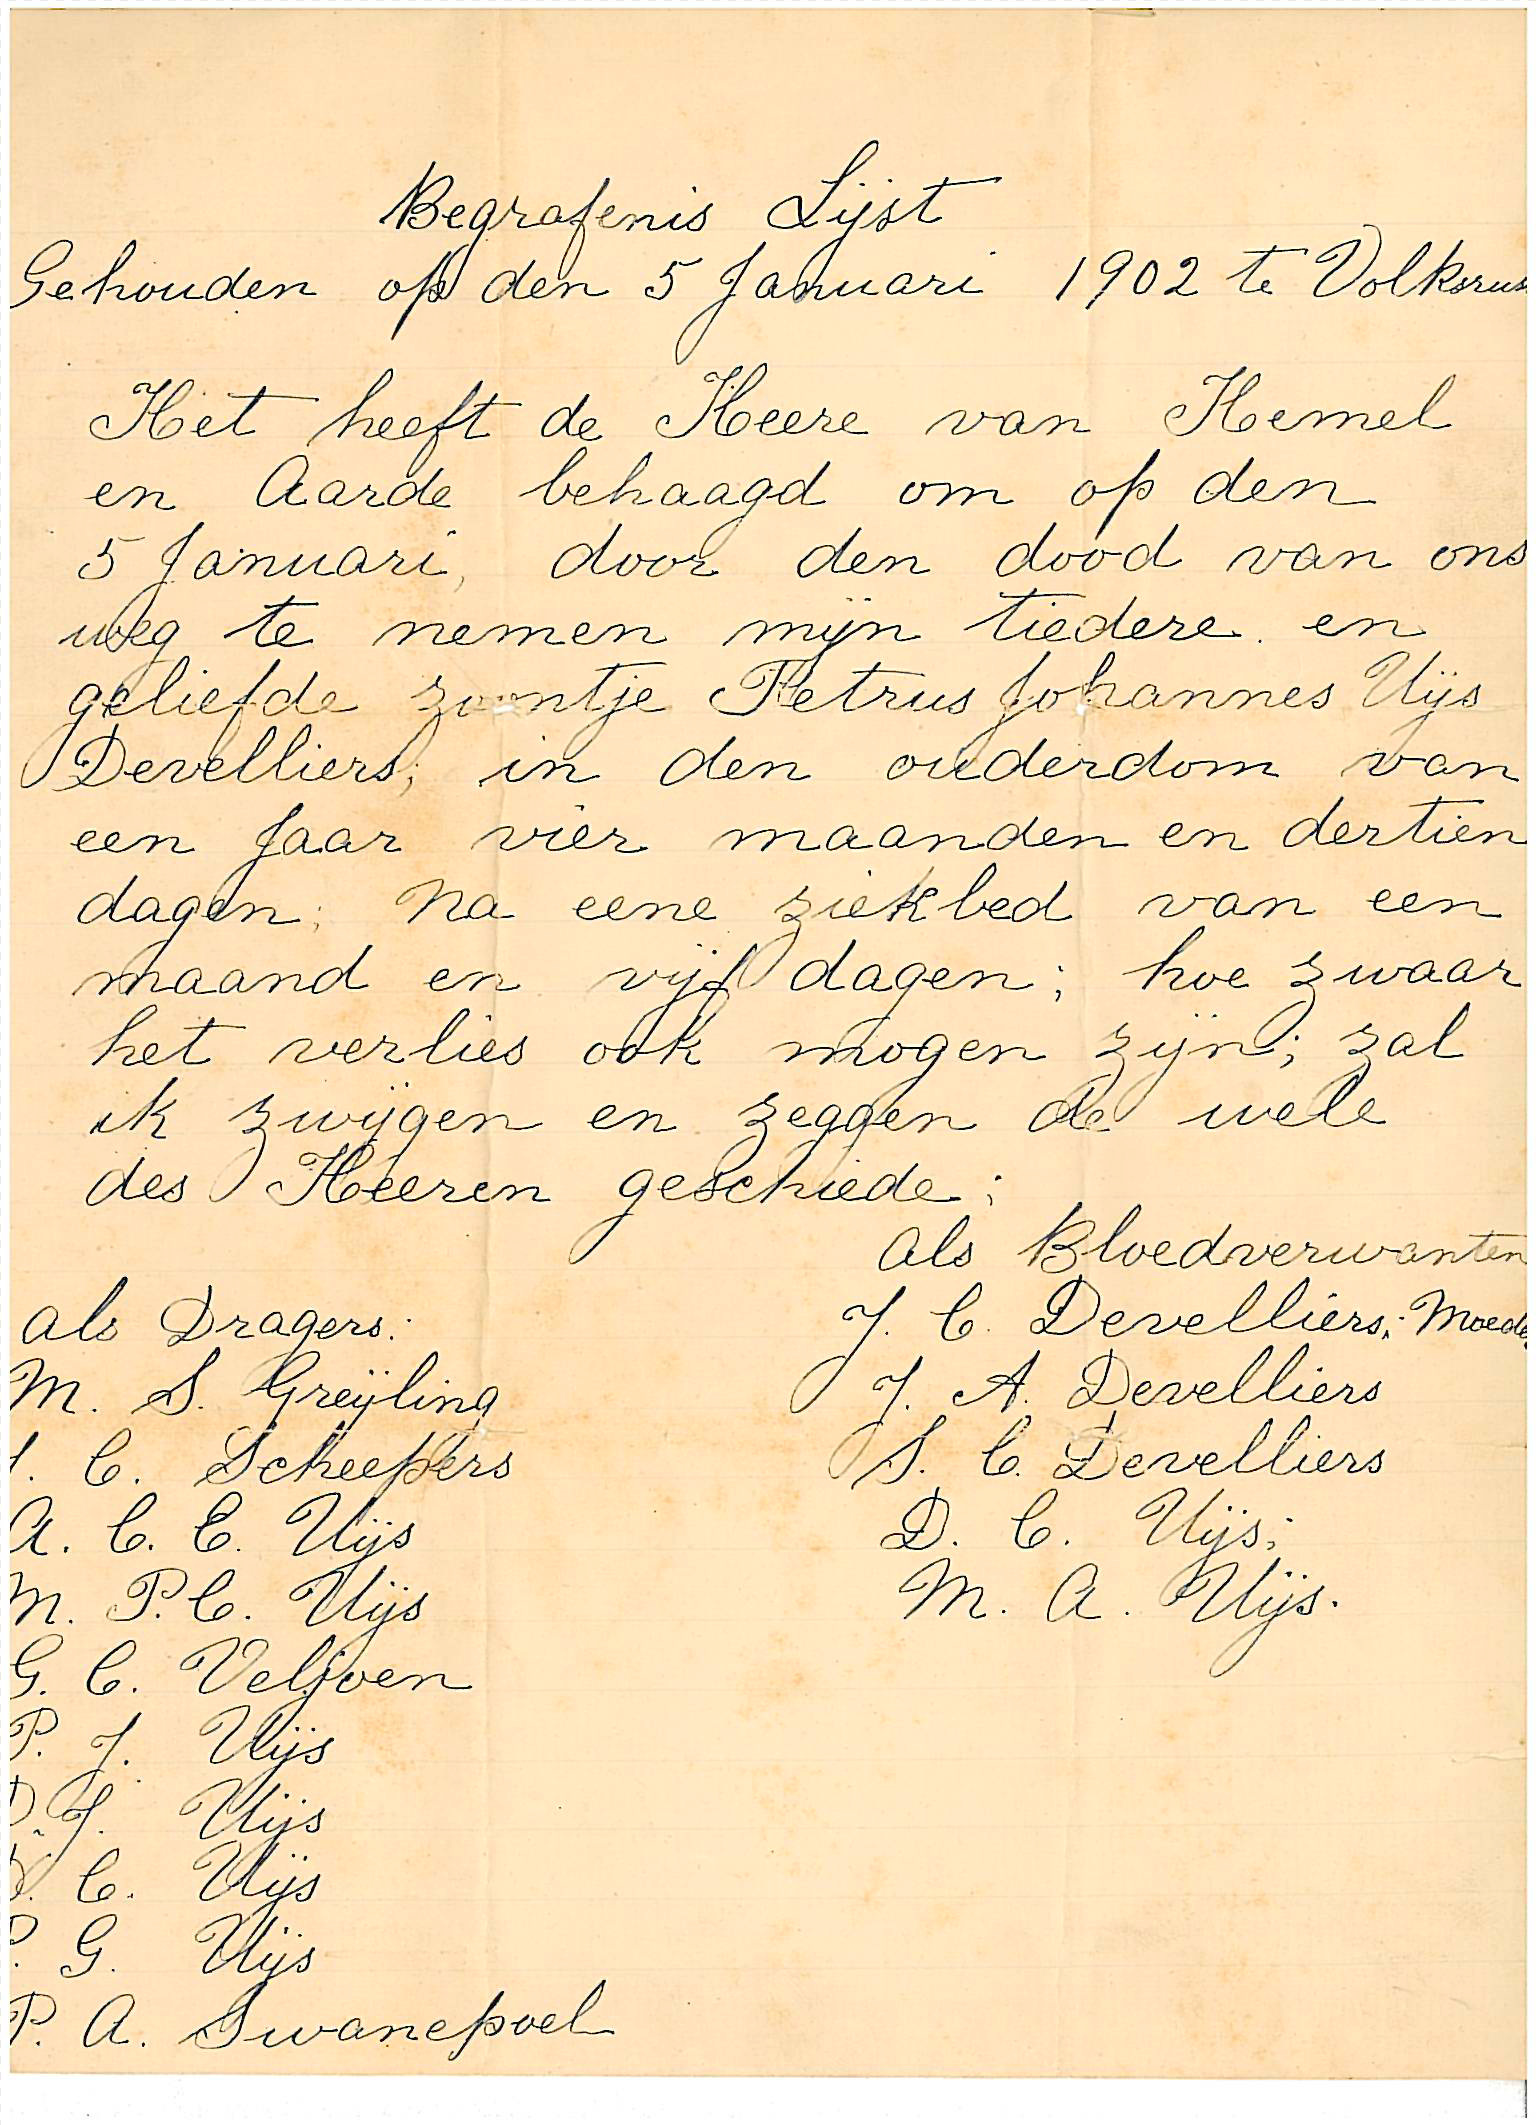 Begrafenis Lijst
Gehouden op den 5 Januari 1902 te Volksrus
Het heeft de Heere van Hemel
en Aarde behaagd om op den
5 Januari, door den dood van ons
weg te nemen mijn tiedere en
geliefde zoontje Petrus Johannes Uijs
Develliers; in den ouderdom van
een Jaar vier maanden en dertien
dagen; Na eene ziekbed van een
maand en vijf dagen; hoe zwaar
het verlies ook mogen zijn; zal
ik zwijgen en zeggen de wele
des Heeren geschiede;
Als Bloedverwanten
J. C. Develliers; Moeder
J. A. Develliers
S. C. Develliers
D. C. Uijs;
M. A. Uijs.
Als Dragers:
M. S. Greijling
C. Scheepers
A. C. E. Uijs
M. P. C. Uijs
G. C. Veljoen
P. J. Uijs
D. J. Uijs
C. Uijs
G. Uijs
P. A. Swanepoel